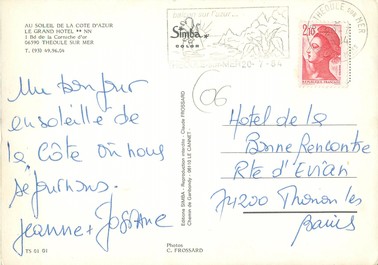 AU SOLEIL DE LA COTE D'AZUR
LE GRAND HOTEL ** NN
1 Bd de la Corniche d'or
06590 THEOULE SUR MER
T. (93) 49.96.04
Un bonjour
ensoleillé de
la Côte où nous
séjournons.
Jeanne + Josiane
TS 01 01
Photos
C. FROSSARD
Editions SIMBA - Reproduction interdite - Claude FROSSARD
Chemin de Garibondy - 06110 LE CANNET
Simba
COLOR
THEOULE SUR MER
2,10
06
Hotel de la
Bonne Rencontre
Rte d'Evian
74200 Thonon les
Bains